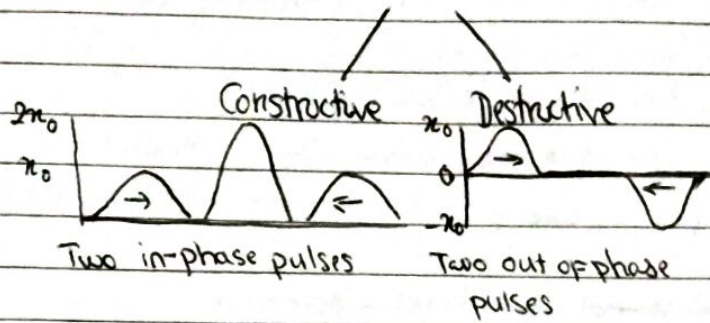 Constructive Destructive
2x₀ x₀
x₀ 0
-x₀
Two in-phase pulses Two out of phase
pulses